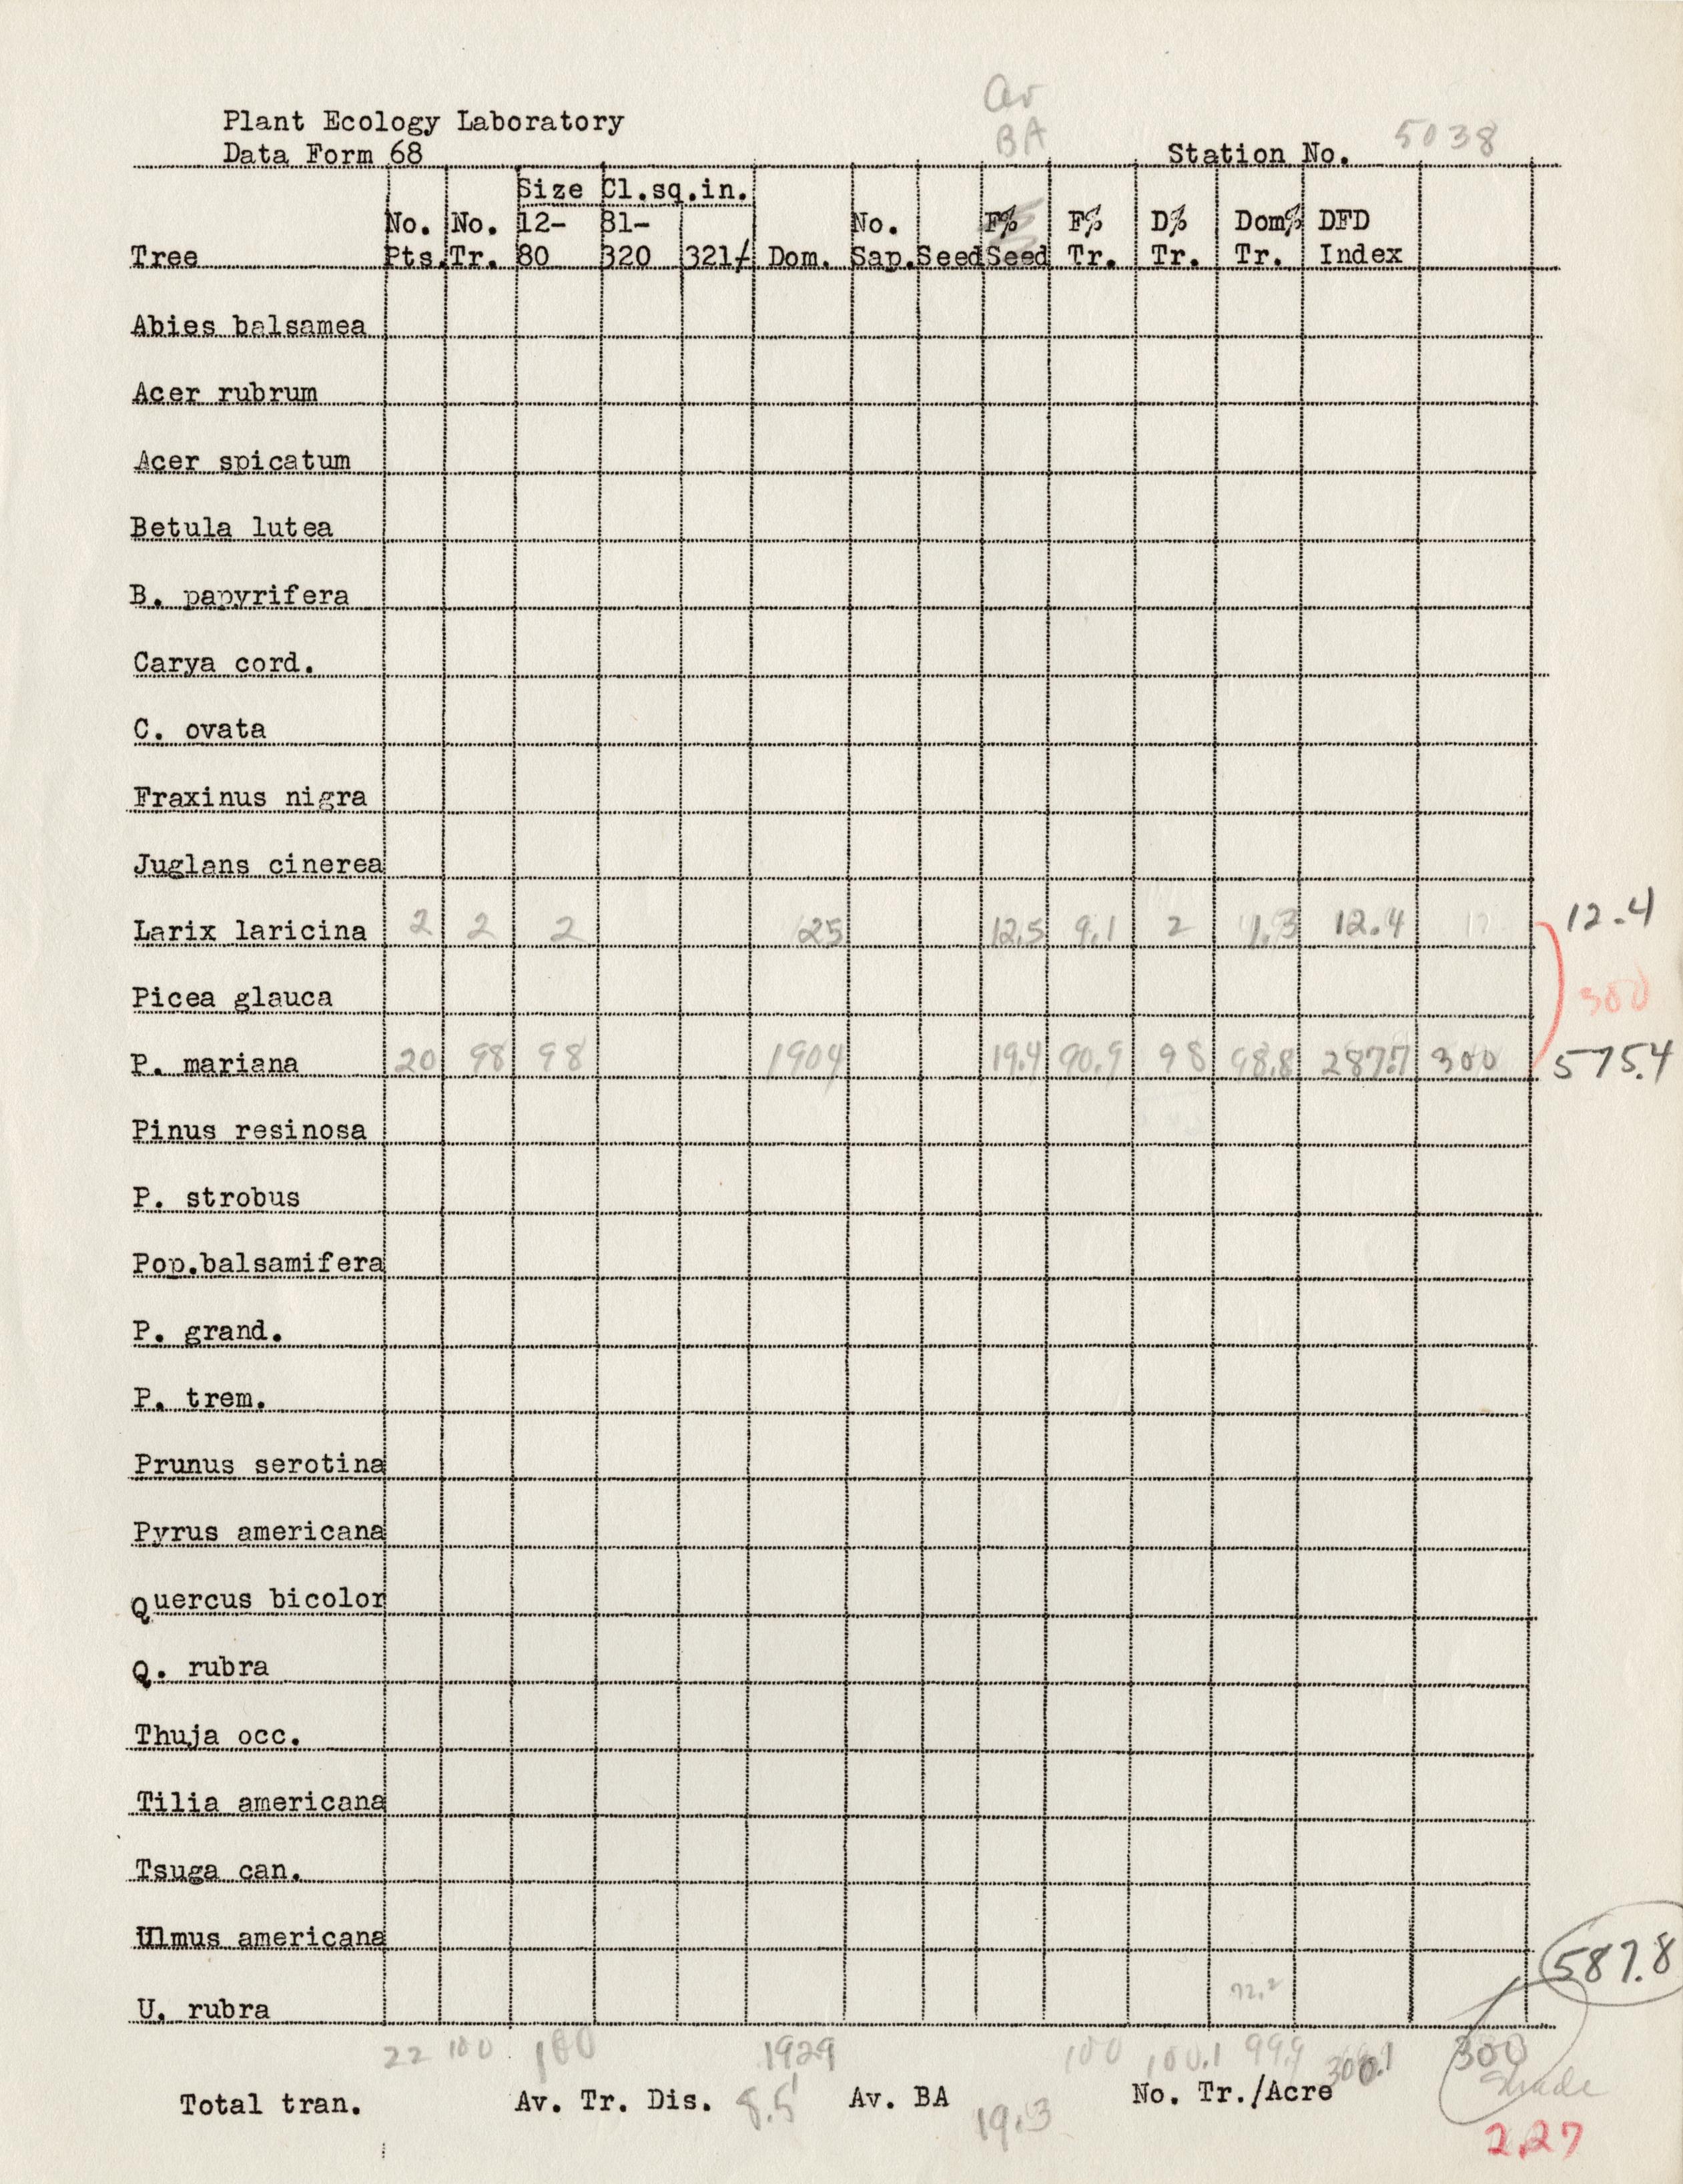 av
Plant Ecology Laboratory
BA
Data Form 68 Station No. 5038
Size Cl.sq.in.
No. No. 12- 81- No. F% F% D% Dom% DFD
Tree Pts. Tr. 80 320 321+ Dom. Sap. Seed Seed Tr. Tr. Tr. Index
Abies balsamea
Acer rubrum
Acer spicatum
Betula lutea
B. papyrifera
Carya cord.
C. ovata
Fraxinus nigra
Juglans cinerea
Larix laricina 2 2 2 25 12.5 9.1 2 1.3 12.4 12.4
Picea glauca 300
P. mariana 20 98 98 1904 19.4 90.9 98 98.8 287.7 300 575.4
Pinus resinosa
P. strobus
Pop.balsamifera
P. grand.
P. trem.
Prunus serotina
Pyrus americana
Quercus bicolor
Q. rubra
Thuja occ.
Tilia americana
Tsuga can.
Ulmus americana
587.8
U. rubra
22 100 100 1929 100 100.1 99.9 300.1 300
Total tran. Av. Tr. Dis. 8.5' Av. BA 19.3 No. Tr./Acre
2.27